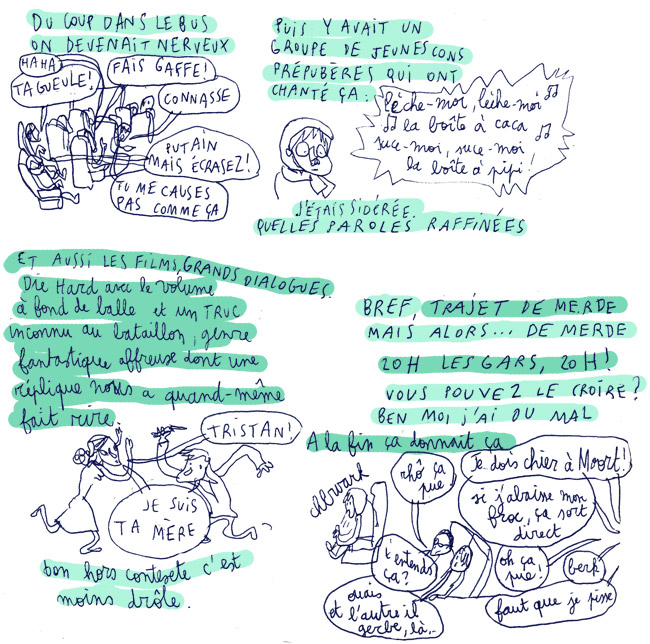 DU COUP DANS LE BUS
ON DEVENAIT NERVEUX
HAHA
TA GUEULE!
FAIS GAFFE!
CONNASSE
PUTAIN
MAIS ÉCRASEZ!
TU ME CAUSES
PAS COMME ÇA
PUIS Y AVAIT UN
GROUPE DE JEUNES CONS
PRÉPUBÈRES QUI ONT
CHANTÉ ÇA:
lèche-moi, lèche-moi
la boîte à caca
suce-moi, suce-moi
la boîte à pipi!
J'ÉTAIS SIDÉRÉE.
QUELLES PAROLES RAFFINÉES
ET AUSSI LES FILMS, GRANDS DIALOGUES.
Die Hard avec le volume
à fond de balle et un TRUC
inconnu au bataillon, genre
fantastique affreuse dont une
réplique nous a quand-même
fait rire.
TRISTAN!
JE SUIS
TA MÈRE
bon hors contexete c'est
moins drôle.
BREF, TRAJET DE MERDE
MAIS ALORS... DE MERDE
20H LES GARS, 20H!
VOUS POUVEZ LE CROIRE?
BEN MOI J'AI DU MAL
A la fin ça donnait ça
rhô ça
pue!
Je dois chier à Moort!
si j'abaisse mon
froc, ça sort
direct
t'entends
ça?
oh ça
pue!
berk
ouais
et l'autre il
gerbe, là...
faut que je pisse